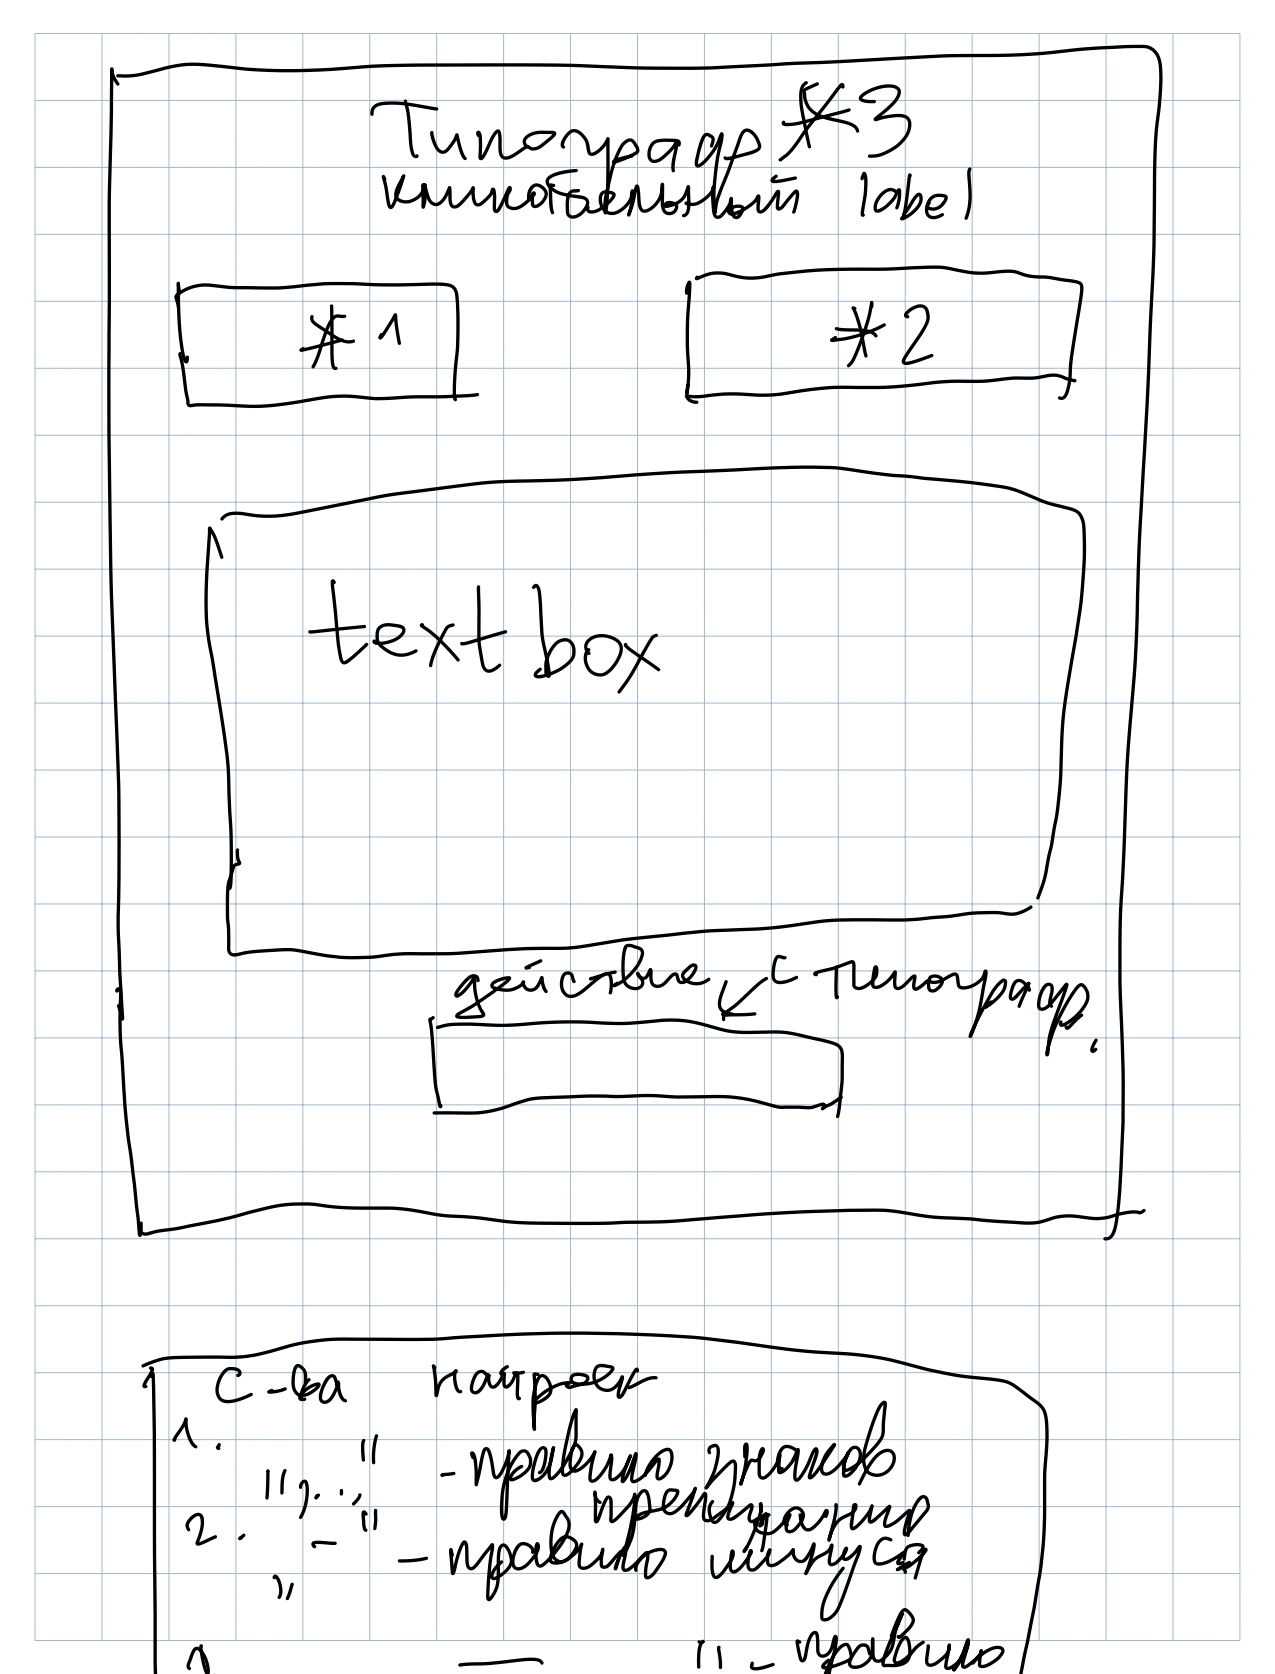 Типограф *3
кликабельный label
*1
*2
textbox
действие с типограф.
С-ва настроек
1. ",..," - правило знаков
препинания
2. "-" - правило минуса
" - правило